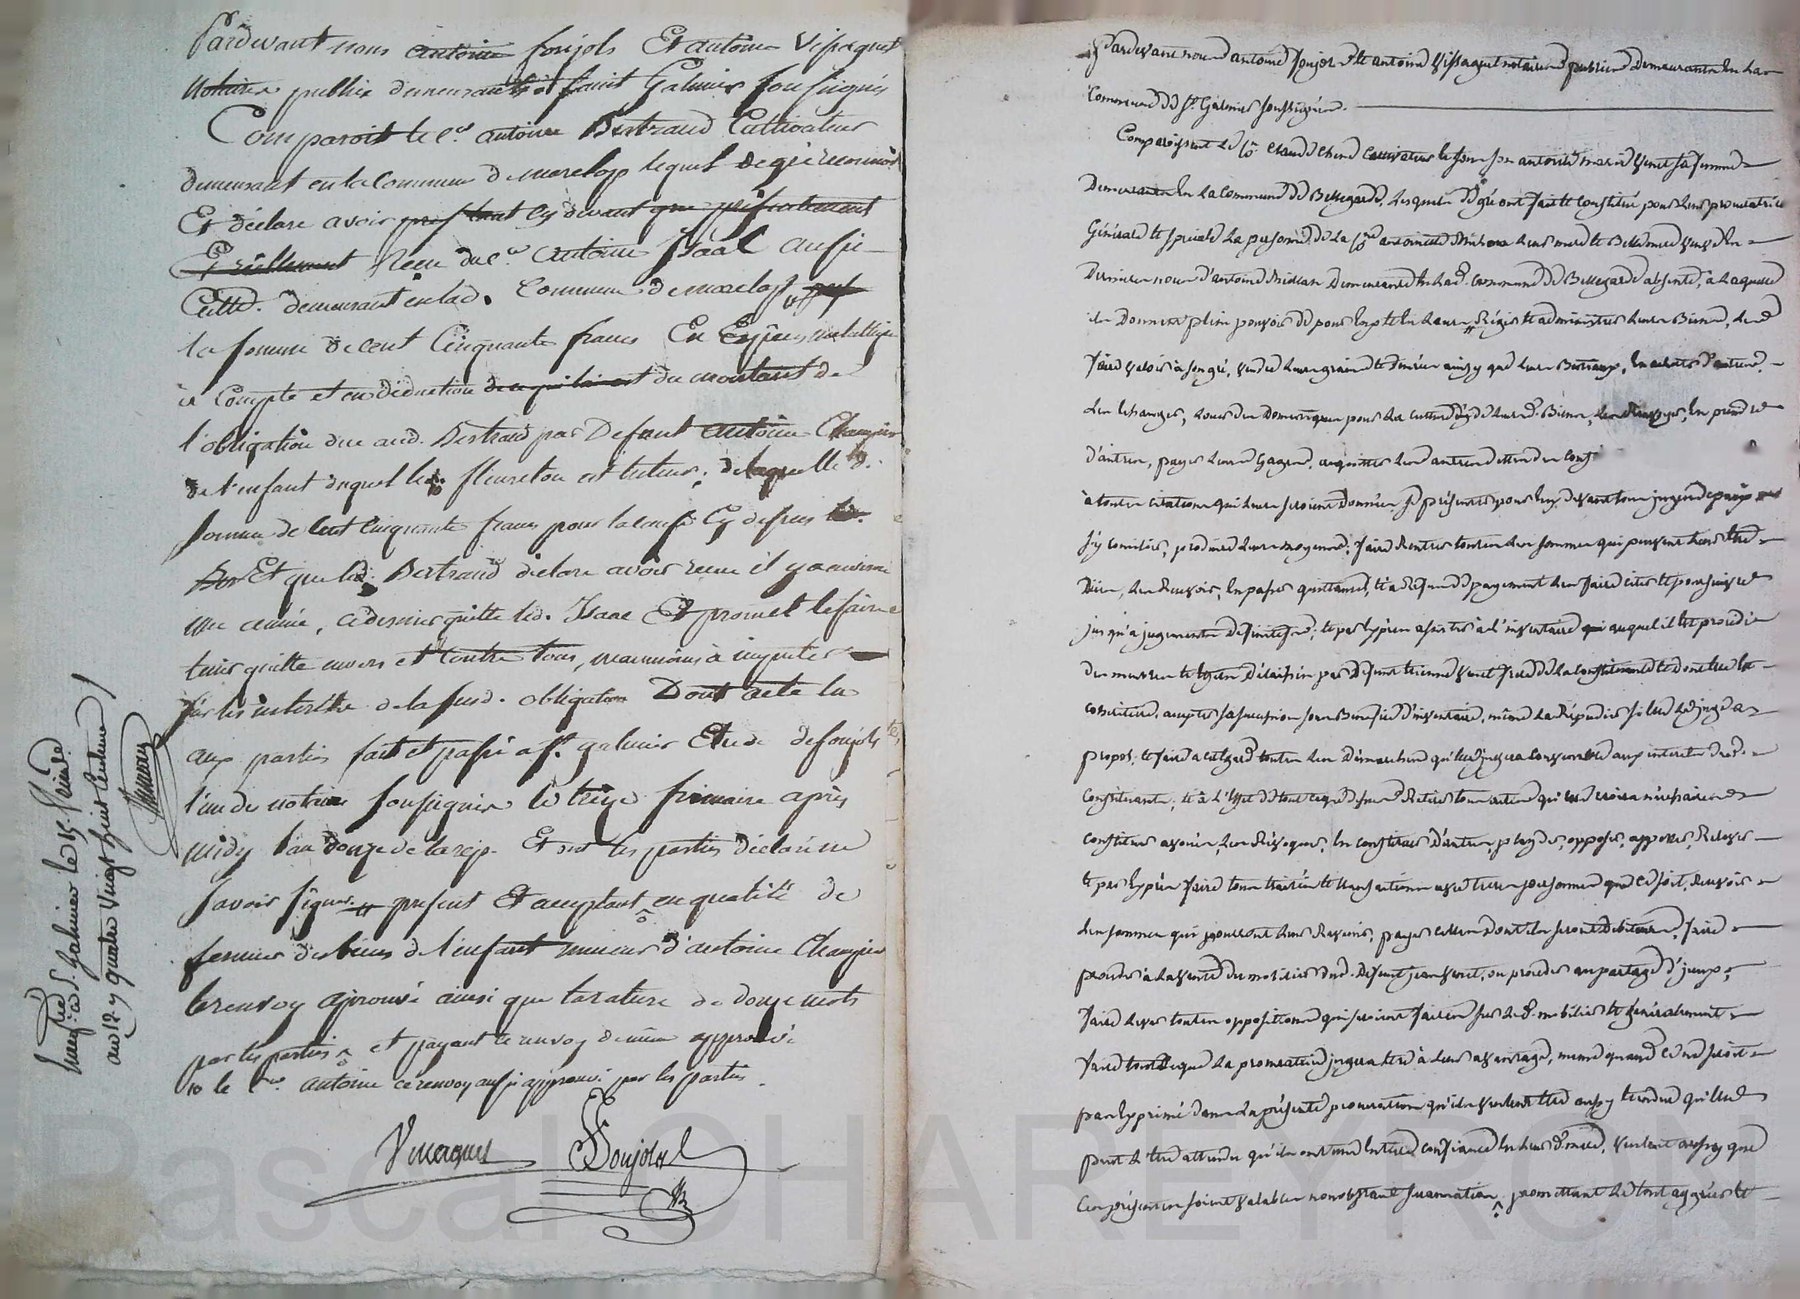 Pardevant nous antoine foujols Et antoine Vissaguet
Notaires publics demeurants à saint Galmier soussignés
Comparoit le c.en antoine Bertrand Cultivateur
demeurant en la Commune de marclop lequel de gré reconnoit
Et déclare avoir cy devant que présentement
Et réellement Receu du c.en antoine Isaac aussi
Cultiv. demeurant en lad. Commune de marclop
la somme de cent Cinquante francs En Espèces métallique
à Compte et en déduction du montant de
l'obligation due aud. Bertrand par Defunt antoine
de l'enfant duquel led. fleureton est tuteur; de laquelle d.
somme de cent cinquante francs pour la cause Cy dessus
Et que led. Bertrand déclare avoir receu il y a environ
une année, ce dernier quitte led. Isaac Et promet le faire
tenir quitte envers et Contre tous, néanmoins à imputer
sur les interêts de la susd. obligation Dont acte lu
aux parties fait et passé a S.t galmier Etude de foujols
l'un de notaires soussignés le treize frimaire après
midy l'an douze de la rép. Et ont les parties déclaré ne
savoir signer present Et acceptant en qualité de
fermier des biens de l'enfant mineur d'antoine
le renvoy aprouvé ainsi que la rature de douze mots
par les parties et payant ce renvoy de même approuvé
le c.en antoine ce renvoy aussi approuvé par les parties
Vissaguet Foujols
Enreg.tré à S.t Galmier le 15. frimaire
an 12 quatre vingt huit centimes
Pardevant nous antoine foujols Et antoine Vissaguet notaires publics demeurants En la
Commune de S.t Galmier soussignés.
Comparoissent le c.en Claude chene Cultivateur et son autorité marie Venet sa femme
Demeurants En la Commune de Bellegarde, Lesquels de gré ont fait et Constitué pour leur procuratrice
Générale et speciale la personne de la c.enne antoinette leur mere et Bellemere veuve En
Dernieres noces d'antoine Demeurante En lad. Commune de Bellegarde absente, à laquelle
ils Donnent plein pouvoir de pour Eux et En leurs Régir et administrer leurs Biens, les
faire valoir à son gré, vendre leurs grains et denrées ainsy que leurs Bestiaux, En acheter d'autres
les Echanger, louer des Domestiques pour la culture desd. Biens, les En prendre
d'autres, payer leurs Gages, acquitter les autres dettes des const
à toutes citations qui leur seroient Données se présenter pour Eux devant tous juges de paix
s'y concilier, produire leurs moyens, faire Rentrer toutes les sommes qui peuvent leur Etre
Dües, les Recevoir, En passer quittance, Et à Refus de payement les faire citer et poursuivre
jusqu'a jugements Definitifs; Et par Exprès assister à l'inventaire auquel il Est procedé
des meubles et Effets Délaissés par Defunt Etienne Venet frere de la Constituante Et dont Elle Est
cohéritiere, accepter sa succession sous Benefice d'inventaire, même la Répudier si Elle le juge à
propos, Et faire a cet Egard toutes les Démarches qu'Elle jugera convenable aux interets des
Constituants; Et à l'Effet de tout ce que dessus Retirer tous actes qu'Elle croira nécessaires
constituer avoués, les Révoquer, En constituer d'autres, plaider, opposer, appeller, Relever
Et par Exprès faire tous traités Et transactions avec telles personnes que ce soit, Recevoir
les sommes qui pourront leur Revenir, payer celles dont ils seront Debiteurs, faire
proceder à la vente du mobilier dud. Defunt Venet, ou proceder au partage d'iceux,
faire lever toutes oppositions qui seroient faites sur led. mobilier Et Généralement
faire tout ce que la procuratrice jugera Etre à leur avantage, meme quand Ce ne seroit
pas Exprimé dans la présente procuration qu'ils veulent Etre aussy Etendue qu'Elle
peut l'Etre attendu qu'ils ont une Entiere confiance En leur d. mere, veulent aussy que
Ces présentes soient valables nonobstant surannation, promettant le tout aggréer Et
Pascal CHAREYRON